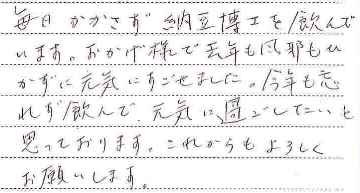 毎日かかさず納豆博士を飲んで
います。おかげ様で去年も風邪もひ
かずに元気にすごせました。今年も忘
れず飲んで、元気に過ごしたいと
思っております。これからもよろしく
お願いします。